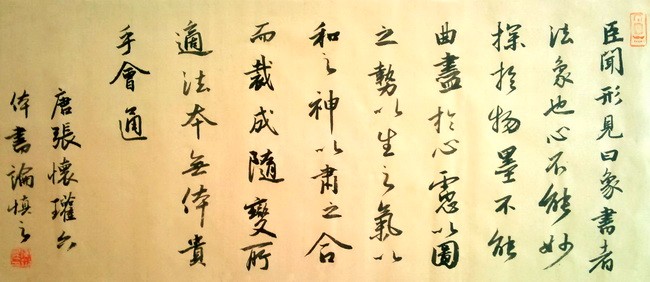 臣聞形見曰象書者
法象也心不能妙
探於物墨不能
曲盡於心慮以圖
之勢以生之氣以
和之神以肅之合
而裁成隨變所
適法本無体貴
乎會通
唐張懷瓘六
体書論慎之